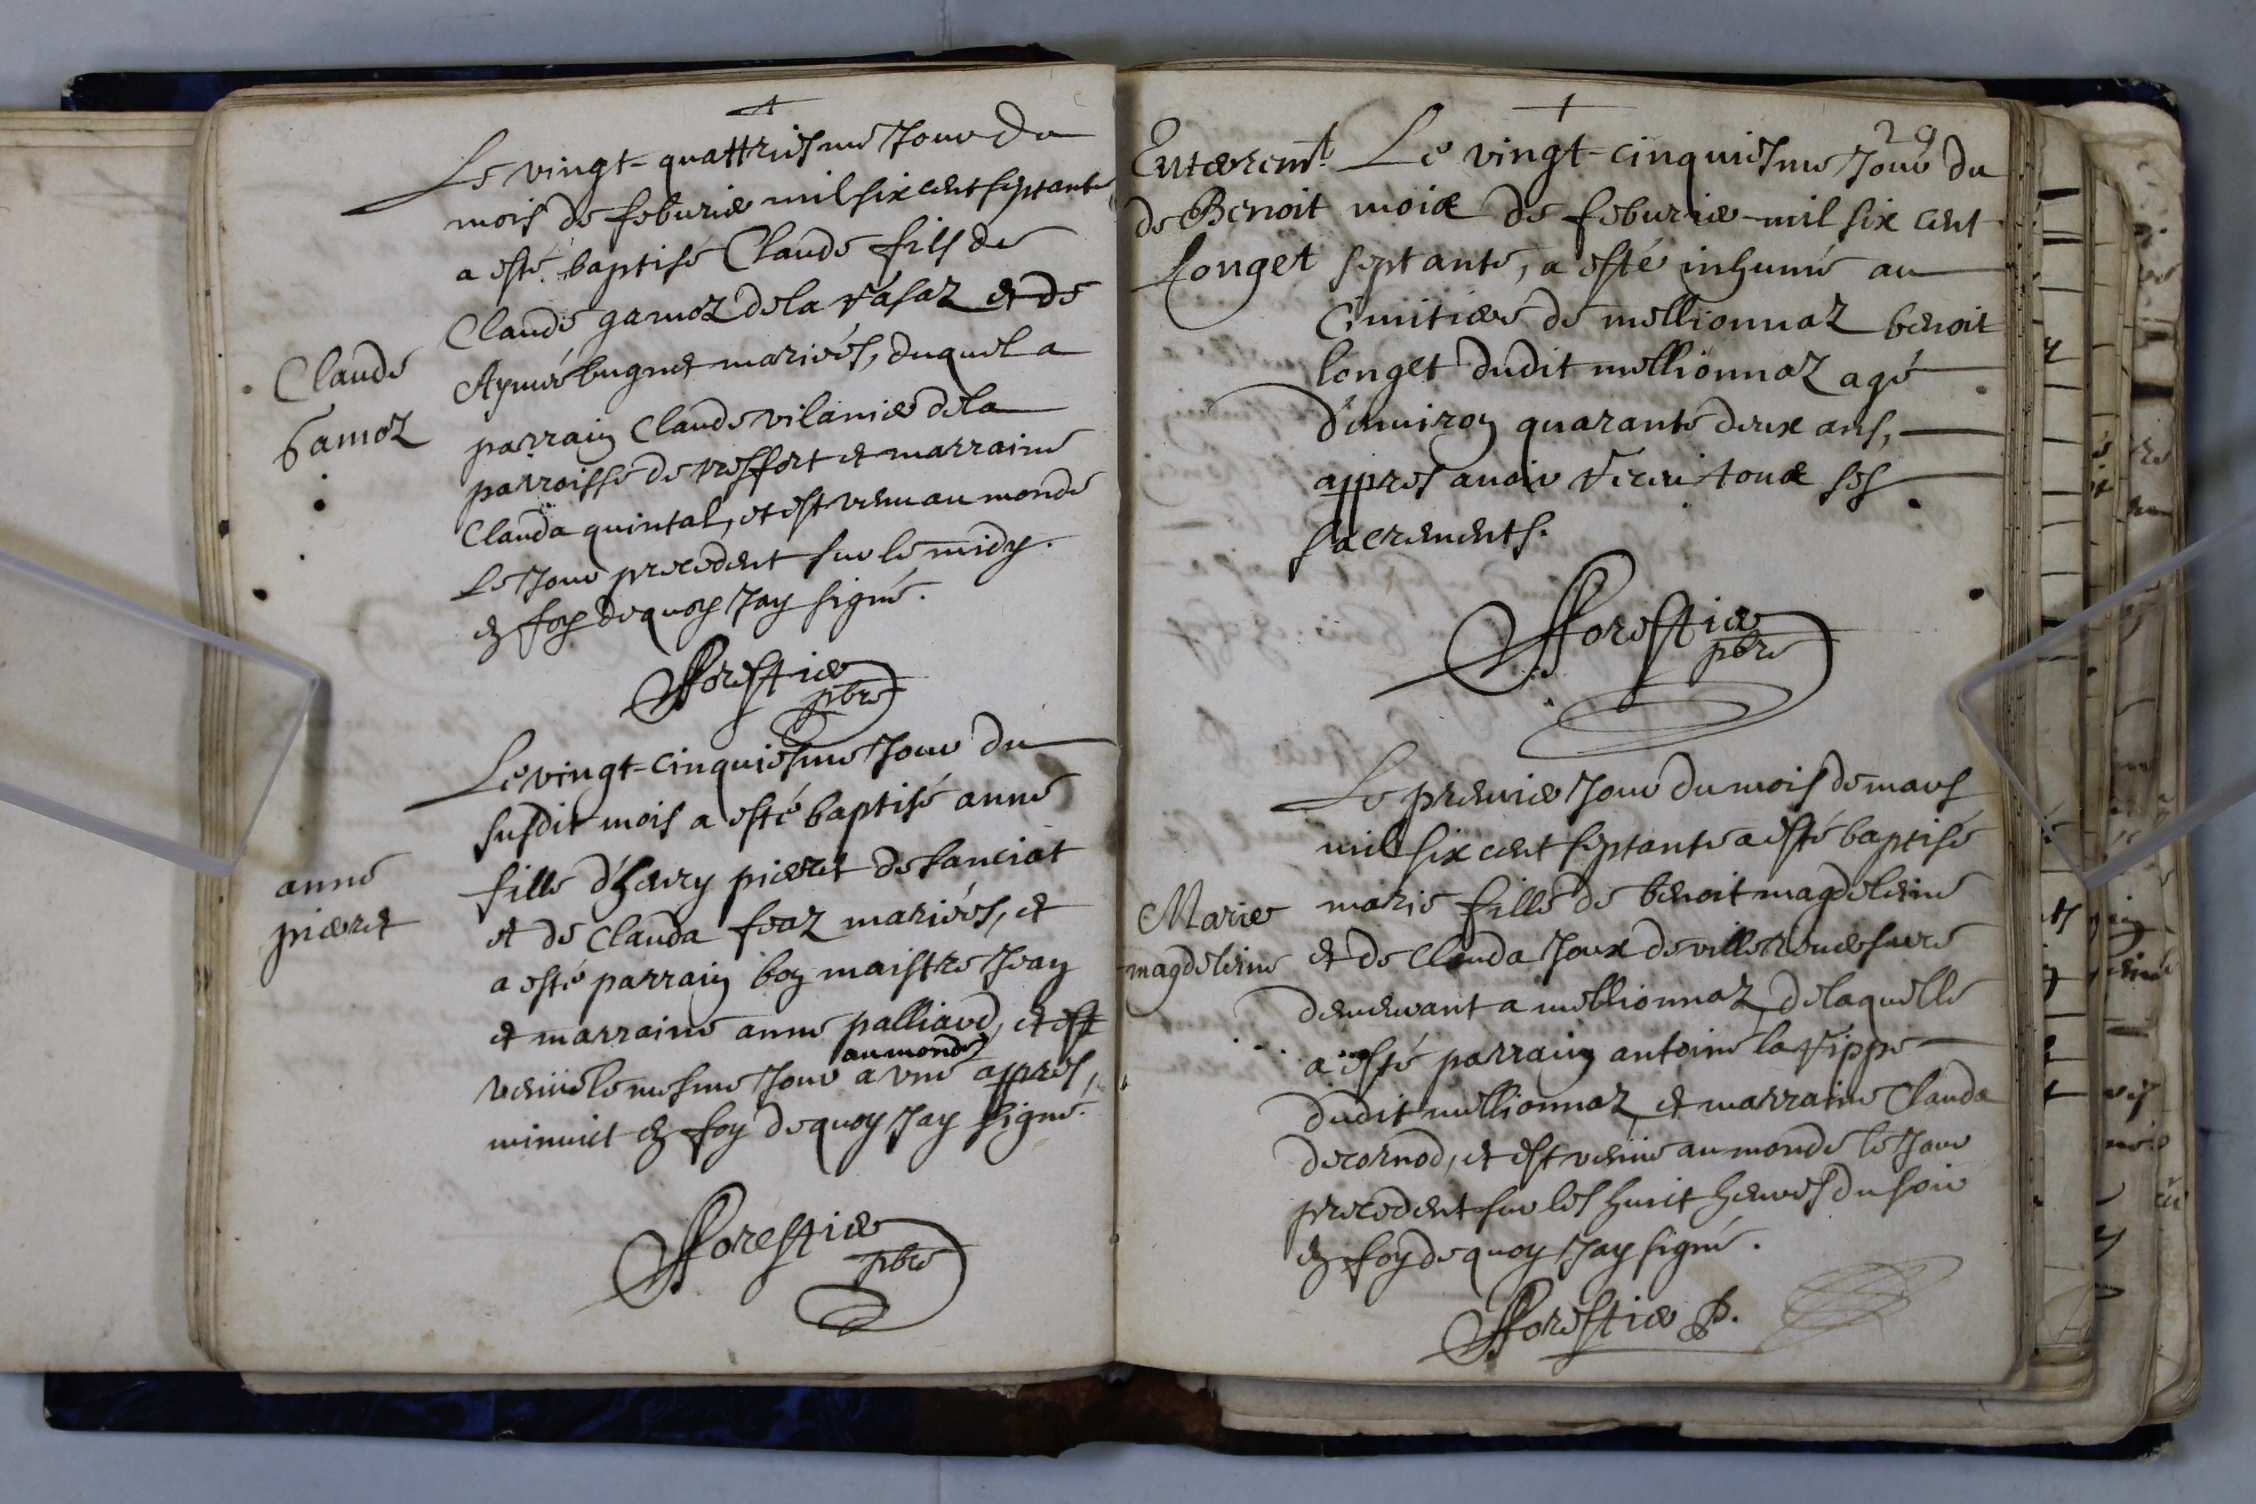 Le vingt-quattriesme Jour du
mois de feburier mil six cent septante
a esté baptisé Claude fils de
Claude garnoz de la rasaz et de
Claude
Aymée bugnet mariées, duquel a
Gamoz
parrain Claude vilanier de la
parroisse de treffort et marraine
Clauda quintal, et est venu au monde
Le Jour precedent sur le midy.
en foy de quoy Jay signé.
fforestier
pbre
Le vingt-cinquiesme Jour du
susdit mois a esté baptisé anne
anne
fille d'henry pieret de sanciat
pieret
et de Clauda feaz mariées, et
a esté parrain hon maistre Jean
et marraine anne palliard, et est
au monde
venue le mesme Jour a une appres,
minuict en foy de quoy Jay signé.
fforestier
pbre
29
Enterremt. Le vingt-cinquiesme Jour du
de Benoit mois de feburier mil six cent
Longet septante, a esté inhumé au
Cimitiere de meillionnaz benoit
longet dudit meillionnaz agé
d'enuiron quarante deux ans,
appres auoir receu tous ses
sacrements.
fforestier
pbre
Le premier Jour du mois de mars
mil six cent septante a esté baptisé
Marie
marie fille de benoit magdeleine
magdeleine
et de Clauda Joux de villereuersure
demeurant a meillionnaz, de laquelle
a esté parrain antoine la rippe
dudit meillionnaz, et marraine Clauda
decornod, et est venue au monde le Jour
precedent sur les huict heures du soir
en foy de quoy Jay signé.
fforestier p.